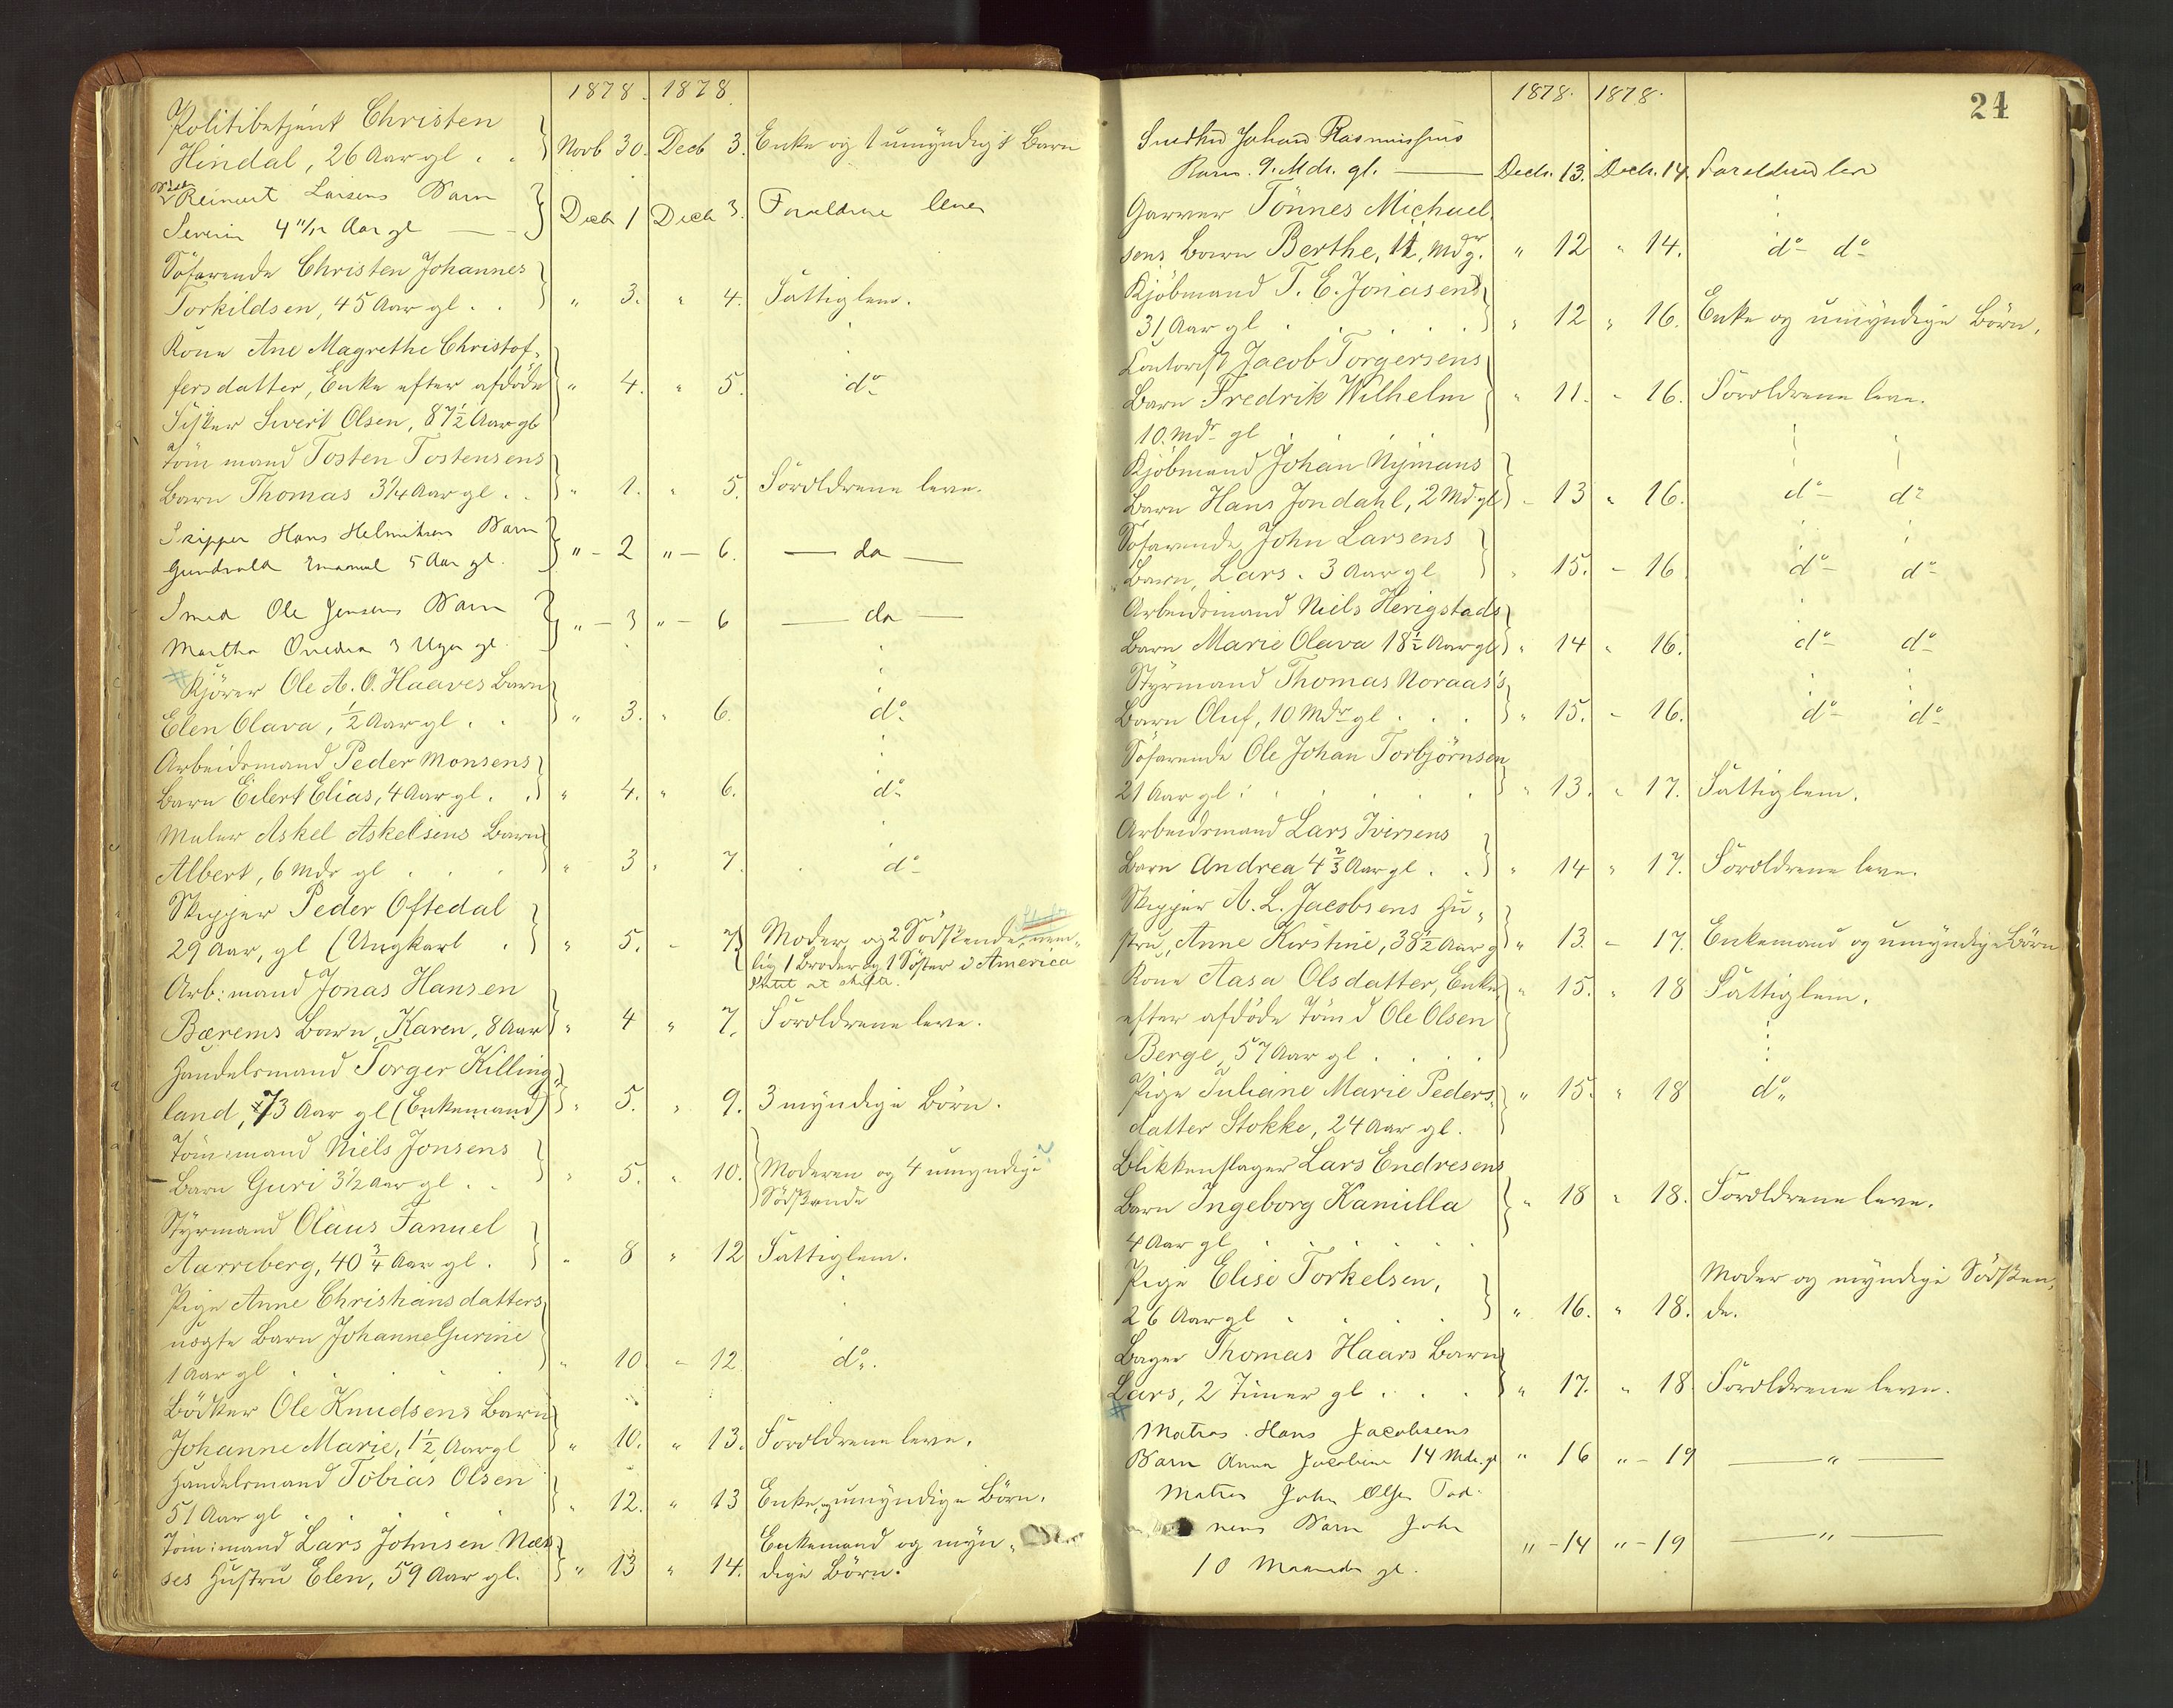 1878. 1878.
Politibetjent Christen
Hindal, 26 Aar gl. . } Novb 30. Decb 3. Enke og 1 umyndigt Barn
Reinert Larsens Barn
Severin 4 11/12 Aar gl — } Decb 1 Decb 3. Forældrene lever
Söfarende Christen Johannes
Torkildsen, 45 Aar gl. . } " 3. " 4. Fattiglem.
Kone Ane Magrethe Christof-
fersdatter, Enke efter afdöde } " 4. " 5. do
Fisker Sivert Olsen, 87 1/2 Aar gl
Tömmand Tosten Tostensens
Barn Thomas 3 1/4 Aar gl. . } " 1. " 5. Forældrene leve.
Skipper Hans Helmiksens Barn
Gundvald Emanuel 5 Aar gl. } " - 2 " - 6. — do —
Smed Ole Jensens Barn
Martha 3 Uger gl. } " - 3 " - 6 — do —
# Kjörer Ole A. O. Haaves Barn
Elen Olava, 1/2 Aar gl. . } " 3. " 6. do
Arbeidsmand Peder Monsens
Barn Eilert Elias, 4 Aar gl. . } " 4. " 6. do
Maler Askel Askelsens Barn
Albert, 6 Mdr gl . . . } " 3 " 7. do
Skipper Peder Oftedal
29 Aar, gl (Ungkarl . } " 5. - 7. { Moder og 2 Södskende, nem-
lig 1 Broder og 1 Söster i America
Intet at skifte.
Arb: mand Jonas Hansen
Bærems Barn, Karen, 8 Aar } " 4 " 7. Forældrene leve.
Handelsmand Torger Killing-
land, 73 Aar gl (Enkemand) } " 5. " 9. 3 myndige Börn.
Töm:mand Niels Jonsens
Barn Guri 3 1/2 Aar gl. . } " 5. " 10. } Moderen og 4 umyndige
Södskende
Styrmand Olaus Fanuel
Aarreberg, 40 3/4 Aar gl . } " 8 " 12 Fattiglem.
Pige Anne Christiansdatters
uægte Barn Johanne Gurine
1 Aar gl . . . . . } " 10 " 12. do.
Bödker Ole Knudsens Barn
Johanne Marie, 1 1/2 Aar gl } " 10. " 13. Forældrene leve.
Handelsmand Tobias Olsen
51 Aar gl . . . } " 12. " 13 Enke, umyndige Börn.
Töm:mand Lars Johnsen Næs-
ses Hustru Elen, 59 Aar gl. } " 13 " 14. Enkemand og myn-
dige Börn.
24
1878. 1878.
Snedker Johan Rasmussens
Barn. 9. Mdr. gl. — Decb. 13. Decb. 14. Forældrene leve
Garver Tönnes Michael-
sens Barn Berthe, 11, Mdr g. " 12 " 14. do do
Kjöbmand T. E. Jonasens
31 Aar gl . . . . . } " 12 " 16. Enke og umyndige Börn.
Contorist Jacob Torgersens
Barn Fredrik Wilhelm } " 11. " 16. Forældrene leve.
10. Mdr gl . . . .
Kjöbmand Johan Nymans
Barn Hans Jondahl, 2 Md gl } - 13 " 16. do do
Söfarende John Larsens
Barn, Lars. 3 Aar gl } " 15. - 16 do do
Arbeidsmand Niels Herigstads
Barn Marie Olava 18 1/2 Aar gl } " 14 " 16. do do
Styrmand Thomas Noraas's
Barn Oluf, 10 Mdr gl . . . } " 15. - 16. do do
Söfarende Ole Johan Torbjörnsen
21 Aar gl . . . . . } " 13. " 17. Fattiglem.
Arbeidsmand Lars Iversens
Barn Andrea 4 2/3 Aar gl . . } " 14 " 17. Forældrene leve.
Skipper A. L. Jacobsens Hu-
stru, Anne Kirstine, 38 1/2 Aar g } " 13. - 17. Enkemand og umyndige Börn
Kone Aasa Olsdatter, Enke } " 15. " 18 Fattiglem.
efter afdöde Töm d Ole Olsen
Berge, 57 Aar gl . . . .
Pige Juliane Marie Peders- } " 15. " 18 do
datter Stokke, 24 Aar gl.
Blikkenslager Lars Endresens
Barn Ingeborg Kamilla } " 18 " 18. Forældrene leve.
4 Aar gl . . . . . .
Pige Elise Torkelsen, Moder og myndige Södsken-
26 Aar gl . . . . } " 16. " 18. de.
Bager Thomas Haars Barn
Lars, 2 Timer gl . . . } " 17. " 18. Forældrene leve.
# Matros. Hans Jacobsens
Barn Anna Jacobine 14 Mdr. gl " 16 " - 19 — " —
Matros John Olsen Tod-
nems Barn John
10 Maaneder gl. " - 14 " - 19 — " —